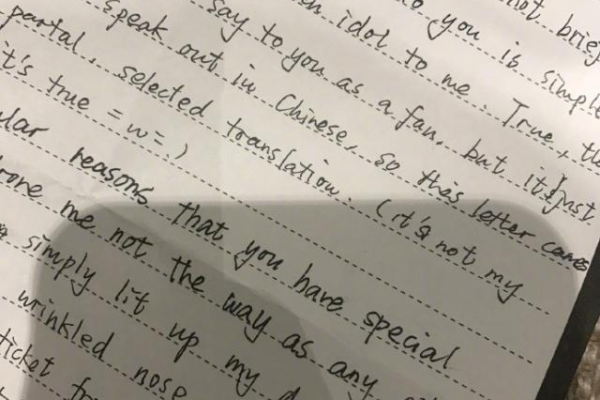 not
you is simple
an idol to me. True, the
say to you as a fan, but it's just
speak out in Chinese, so this letter comes
partal, selected translation. (it's not my
it's true =w= )
reasons that you have special
me not the way as any
simply lit up my
wrinkled nose
ticket